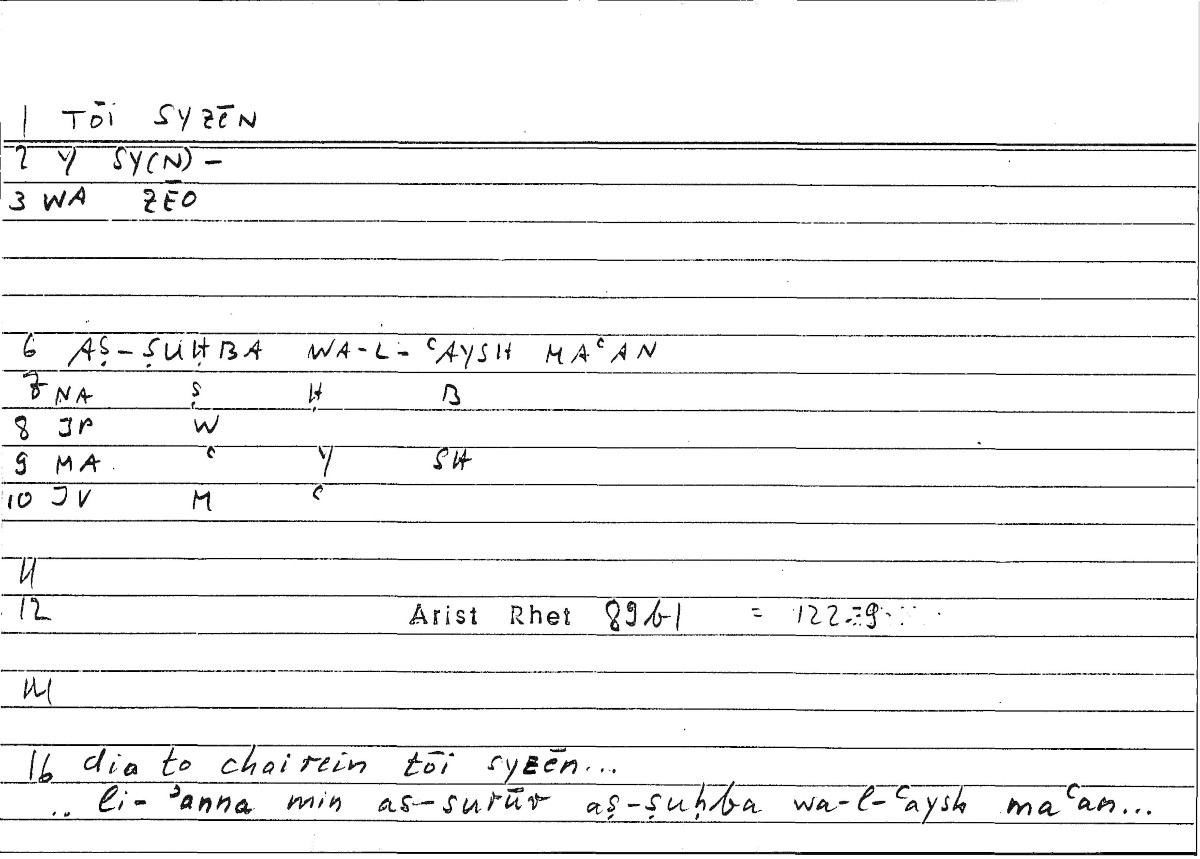 1 TŌI SYZĒN
2 Y SY(N) -
3 WA ZĒO
6 AṢ-ṢUḤBA WA-L-ʿAYSH MAʿAN
7 NA Ṣ Ḥ B
8 JP W
9 MA ʿ Y SH
10 JV M ʿ
11
12 Arist Rhet 89b1 = 122
16 dia to chairein tōi syzēn...
.. li-ʾanna min as-surūr aṣ-ṣuḥba wa-l-ʿaysh maʿan...